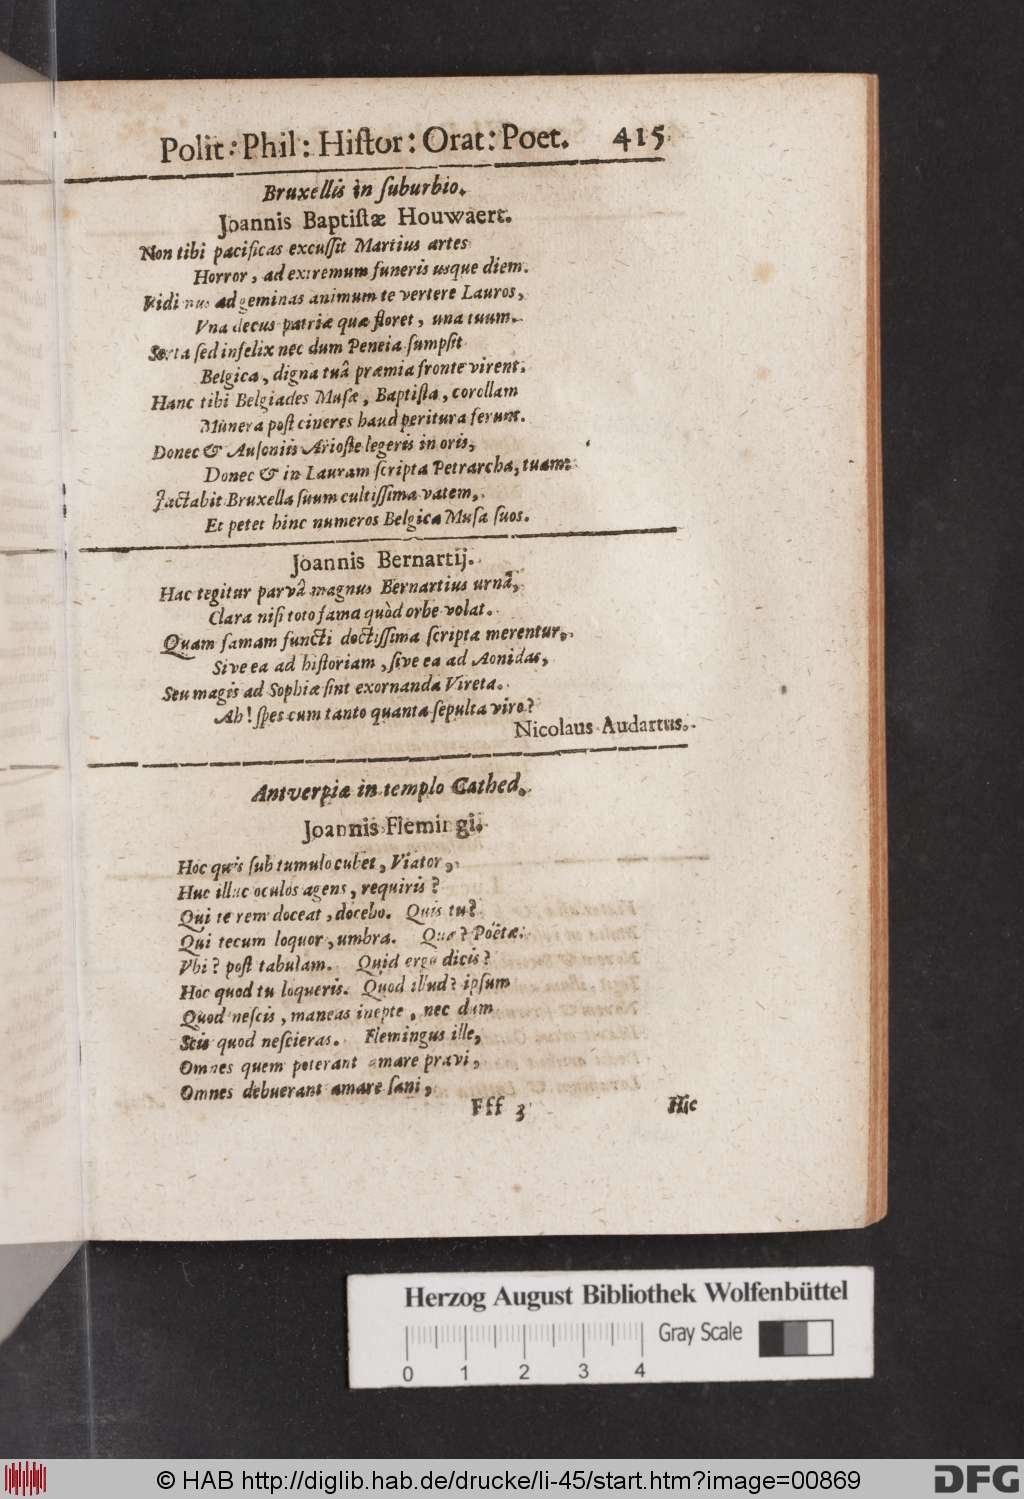 Polit: Phil: Hiſtor: Orat: Poet. 415
Bruxellis in ſuburbio.
Joannis Baptiſtæ Houwaert.
Non tibi pacificas excuſſit Martius artes
Horror, ad extremum funeris usque diem.
Vidimus ad geminas animum te vertere Lauros,
Vna decus patriæ quæ floret, una tuum.
Serta ſed infelix nec dum Peneia ſumpſit
Belgica, digna tuâ præmia fronte virent.
Hanc tibi Belgiades Muſæ, Baptiſta, corollam
Munera poſt cineres haud peritura ferunt.
Donec & Auſoniis Arioſte legeris in oris,
Donec & in Lauram ſcripta Petrarcha, tuam:
Jactabit Bruxella ſuum cultiſſima vatem,
Et petet hinc numeros Belgica Muſa ſuos.
Joannis Bernartij.
Hac tegitur parvâ magnus Bernartius urnâ,
Clara niſi toto fama quòd orbe volat.
Quam famam functi doctiſſima ſcripta merentur,
Sive ea ad hiſtoriam, ſive ea ad Aonidas,
Seu magis ad Sophiæ ſint exornanda Vireta.
Ah! ſpes cum tanto quanta ſepulta viro?
Nicolaus Audartus.
Antverpiæ in templo Cathed.
Joannis Flemingi.
Hoc quis ſub tumulo cubet, Viator,
Huc illuc oculos agens, requiris?
Qui te rem doceat, docebo. Quis tu?
Qui tecum loquor, umbra. Quæ? Poëtæ.
Vbi? poſt tabulam. Quid ergo dicis?
Hoc quod tu loqueris. Quod illud? ipſum
Quod neſcis, maneas inepte, nec dum
Scis quod neſcieras. Flemingus ille,
Omnes quem poterant amare pravi,
Omnes debuerant amare ſani,
Fff 3 Hic
Herzog August Bibliothek Wolfenbüttel
Gray Scale
0 1 2 3 4
© HAB http://diglib.hab.de/drucke/li-45/start.htm?image=00869
DFG